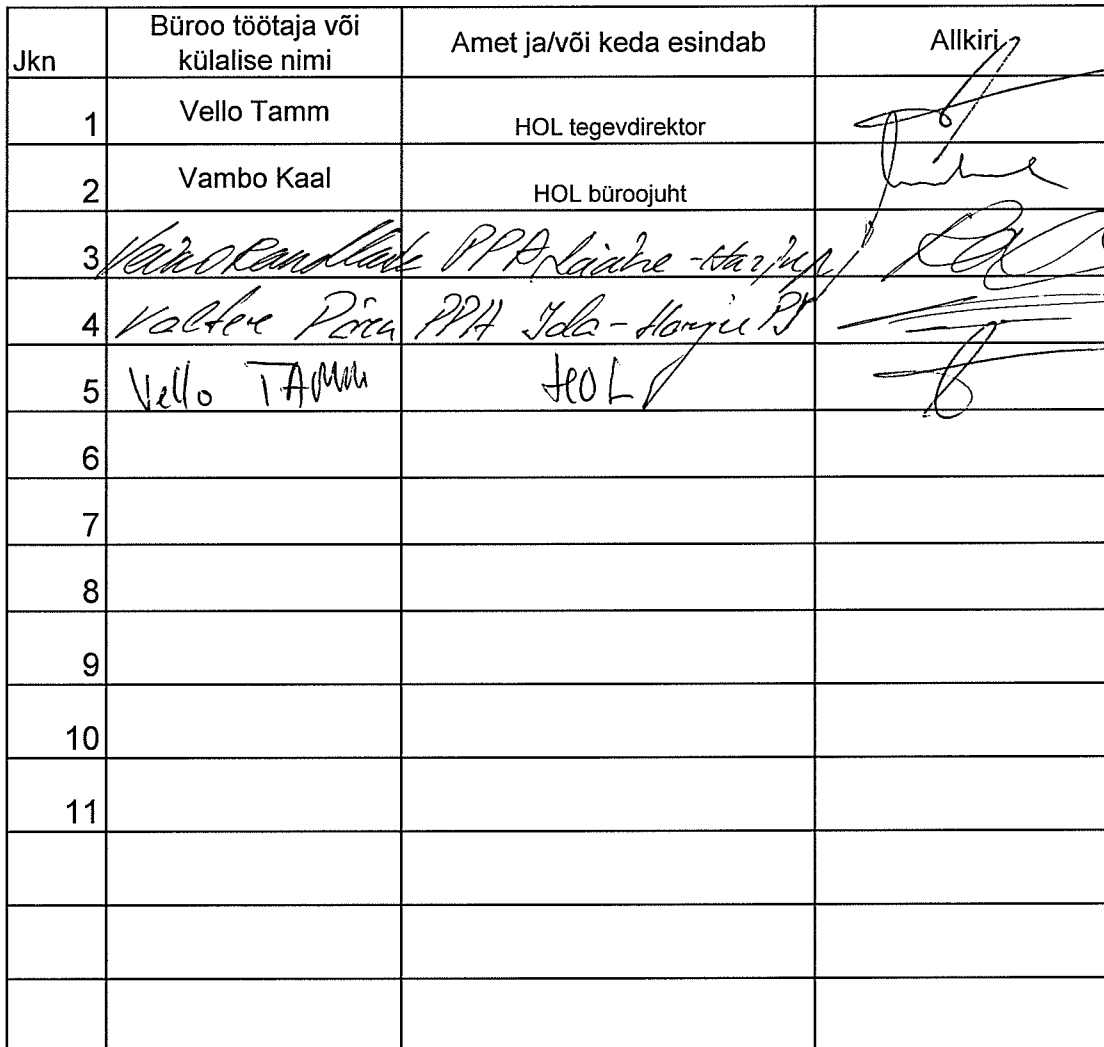 Jkn Büroo töötaja või külalise nimi Amet ja/või keda esindab Allkiri
1 Vello Tamm HOL tegevdirektor
2 Vambo Kaal HOL büroojuht
3 PPA Lääne-Harju
4 PPA Ida-Harju PJ
5 Vello TAMM HOL
6
7
8
9
10
11